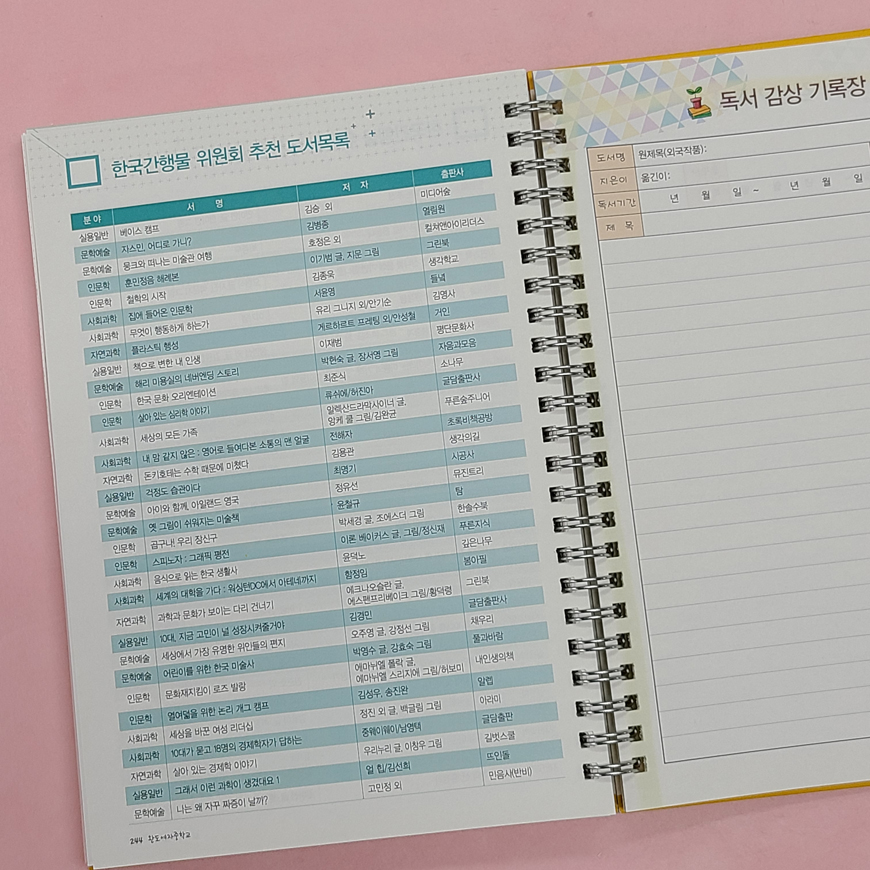 한국간행물 위원회 추천 도서목록
분 야 서 명 저 자 출판사
실용일반 베이스 캠프 김승 외 미디어숲
문학예술 자스민, 어디로 가니? 김병종 열림원
문학예술 뭉크와 떠나는 미술관 여행 호정은 외 컬쳐앤아이리더스
인문학 훈민정음 해례본 이기범 글, 지문 그림 그린북
인문학 철학의 시작 김종욱 생각학교
사회과학 집에 들어온 인문학 서윤영 들녘
사회과학 무엇이 행동하게 하는가 유리 그니지 외/안기순 김영사
자연과학 플라스틱 행성 게르하르트 프레팅 외/안성철 거인
실용일반 책으로 변한 내 인생 이재범 평단문화사
문학예술 해리 미용실의 네버엔딩 스토리 박현숙 글, 장서영 그림 자음과모음
인문학 한국 문화 오리엔테이션 최준식 소나무
인문학 살아 있는 심리학 이야기 류쉬에/허진아 글담출판사
사회과학 세상의 모든 가족 알렉산드라막사이너 글,
앙케 쿨 그림/김완균 푸른숲주니어
사회과학 내 맘 같지 않은 : 영어로 들여다본 소통의 맨 얼굴 전해자 초록비책공방
자연과학 돈키호테는 수학 때문에 미쳤다 김용관 생각의길
실용일반 걱정도 습관이다 최명기 시공사
문학예술 아이와 함께, 아일랜드 영국 정유선 뮤진트리
문학예술 옛 그림이 쉬워지는 미술책 윤철규 탐
인문학 곱구나! 우리 장신구 박세경 글, 조에스더 그림 한솔수북
인문학 스피노자 : 그래픽 평전 이론 베이커스 글, 그림/정신재 푸른지식
사회과학 음식으로 읽는 한국 생활사 윤덕노 깊은나무
사회과학 세계의 대학을 가다 : 워싱턴DC에서 아테네까지 함정임 봄아필
자연과학 과학과 문화가 보이는 다리 건너기 에크나오슬란 글,
에스펜프리베이크 그림/황덕령 그린북
실용일반 10대, 지금 고민이 널 성장시켜줄거야 김경민 글담출판사
문학예술 세상에서 가장 유명한 위인들의 편지 오주영 글, 강정선 그림 채우리
문학예술 어린이를 위한 한국 미술사 박영수 글, 강효숙 그림 풀과바람
인문학 문화재지킴이 로즈 발랑 에마뉘엘 폴락 글,
에마뉘엘 스리지에 그림/허보미 내인생의책
인문학 열여덟을 위한 논리 개그 캠프 김성우, 송진완 알렙
사회과학 세상을 바꾼 여성 리더십 정진 외 글, 백금림 그림 아라미
사회과학 10대가 묻고 18명의 경제학자가 답하는 중웨이웨이/남영택 글담출판
자연과학 살아 있는 경제학 이야기 우리누리 글, 이창우 그림 길벗스쿨
실용일반 그래서 이런 과학이 생겼대요 1 얼 힙/김선희 뜨인돌
문학예술 나는 왜 자꾸 짜증이 날까? 고민정 외 민음사(반비)
244 완도여자중학교
독서 감상 기록장
도서명 원제목(외국작품):
지은이 옮긴이:
독서기간 년 월 일 ~ 년 월 일
제 목